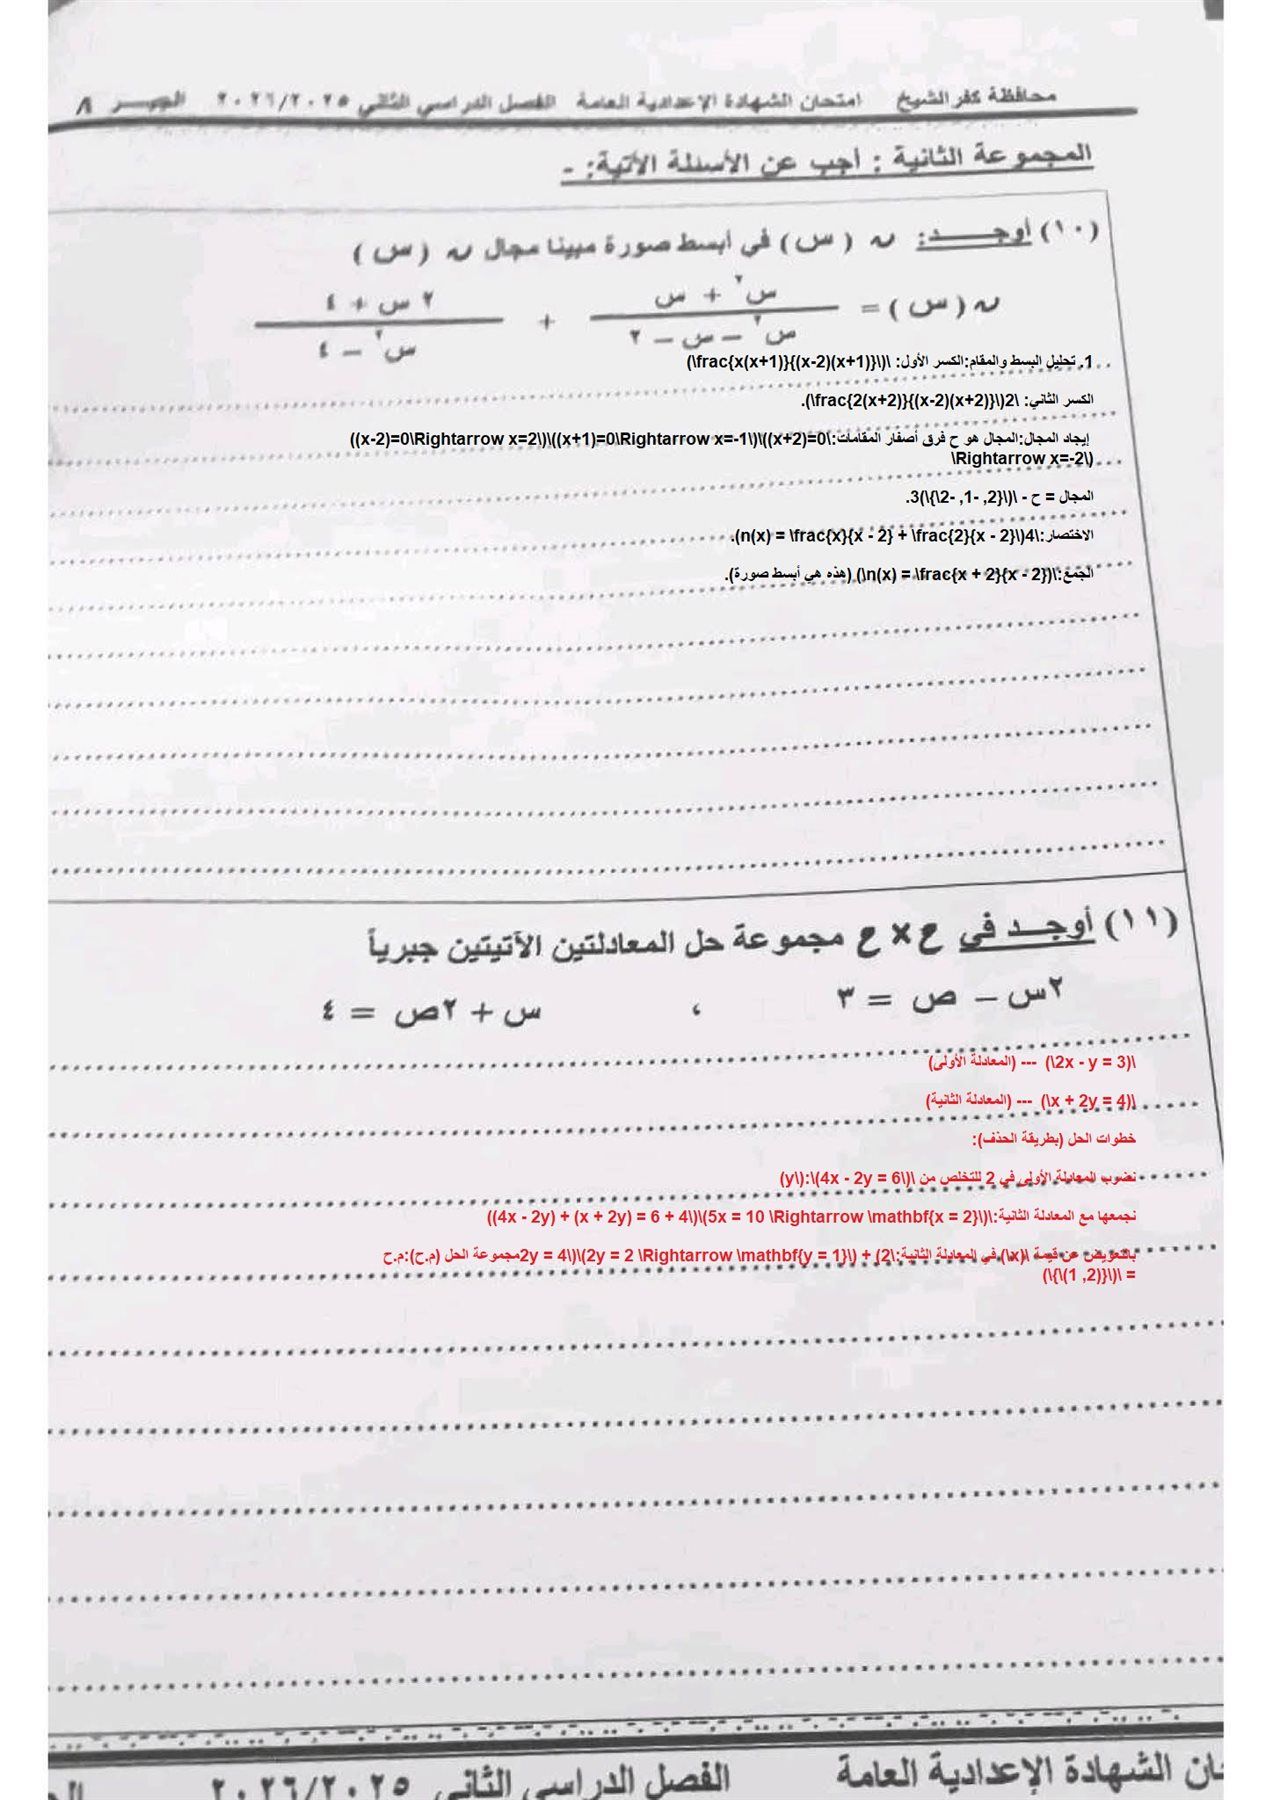 محافظة كفر الشيخ امتحان الشهادة الإعدادية العامة الفصل الدراسي الثاني ٢٠٢٦/٢٠٢٥ الجبــر ٨
المجموعة الثانية : أجب عن الأسئلة الأتية: -
(١٠) أوجـــد: ن (س) في أبسط صورة مبينا مجال ن (س)
ن (س) = (س٢ + س)/(س٢ – س – ٢) + (٢ س + ٤)/(س٢ – ٤)
1. تحليل البسط والمقام:الكسر الأول: \(\frac{x(x+1)}{(x-2)(x+1)}\)
الكسر الثاني: \(\frac{2(x+2)}{(x-2)(x+2)}\)2.
إيجاد المجال:المجال هو ح فرق أصفار المقامات:\((x-2)=0\Rightarrow x=2\)\((x+1)=0\Rightarrow x=-1\)\((x+2)=0
\Rightarrow x=-2\)
المجال = ح - \(\{2, -1, -2\}\)3.
الاختصار:\(n(x) = \frac{x}{x - 2} + \frac{2}{x - 2}\)4.
الجمع:\(n(x) = \frac{x + 2}{x - 2}\) (هذه هي أبسط صورة).
(١١) أوجــد في ح × ح مجموعة حل المعادلتين الآتيتين جبرياً
٢س – ص = ٣ ، س + ٢ص = ٤
\(2x - y = 3\) --- (المعادلة الأولى)
\(x + 2y = 4\) --- (المعادلة الثانية)
خطوات الحل (بطريقة الحذف):
نضرب المعادلة الأولى في 2 للتخلص من \(y\):\(4x - 2y = 6\)
نجمعها مع المعادلة الثانية:\((4x - 2y) + (x + 2y) = 6 + 4\)\(5x = 10 \Rightarrow \mathbf{x = 2}\)
بالتعويض عن قيمة \(x\) في المعادلة الثانية:\(2 + 2y = 4\)\(2y = 2 \Rightarrow \mathbf{y = 1}\)مجموعة الحل (م.ح):م.ح
= \(\{(2, 1)\}\)
ان الشهادة الإعدادية العامة الفصل الدراسي الثاني ٢٠٢٦/٢٠٢٥